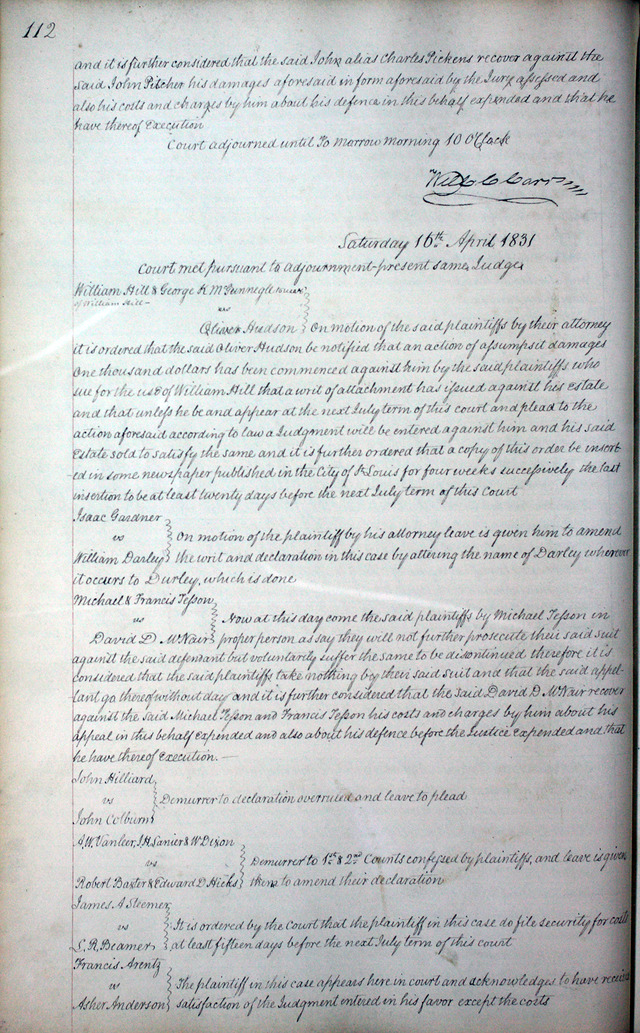 112
and it is further considered that the said John alias Charles Pickens recover against the
said John Pitcher his damages aforesaid in form aforesaid by the Jury assessed and
also his costs and charges by him about his defence in this behalf expended and that he
have thereof Execution
Court adjourned until To Morrow Morning 10 O'Clock
Will C Carr
Saturday 16th April 1831
Court met pursuant to adjournment present same Judge
William Hill & George K McGunnegle
of William Hill
vs
Oliver Hudson } On motion of the said plaintiffs by their attorney
it is ordered that the said Oliver Hudson be notified that an action of assumpsit damages
One thousand dollars has been commenced against him by the said plaintiffs who
sue for the use of William Hill that a writ of attachment has issued against his Estate
and that unless he be and appear at the next July term of this court and plead to the
action aforesaid according to law a Judgment will be entered against him and his said
Estate sold to satisfy the same and it is further ordered that a copy of this order be insert
ed in some newspaper published in the City of St Louis for four weeks successively the last
insertion to be at least twenty days before the next July term of this Court
Isaac Gardner
vs } On motion of the plaintiff by his attorney leave is given him to amend
William Darley } the writ and declaration in this case by altering the name of Darley wherever
it occurs to Durley, which is done
Michael & Francis Tesson
vs } Now at this day come the said plaintiffs by Michael Tesson in
David D. McNair } proper person as say they will not further prosecute their said suit
against the said defendant but voluntarily suffer the same to be discontinued therefore it is
considered that the said plaintiffs take nothing by their said suit and that the said appel-
lant go thereof without day and it is further considered that the said David D. McNair recover
against the said Michael Tesson and Francis Tesson his costs and charges by him about his
appeal in this behalf expended and also about his defence before the Justice Expended and that
he have thereof Execution. —
John Hilliard
vs } Demurrer to declaration overruled and leave to plead
John Colburn
A.W. Vanleer, I.H. Lanier & W Dixon
vs } Demurrer to 1st & 2nd Counts confessed by plaintiffs, and leave is given
Robert Baxter & Edward D. Hicks } them to amend their declaration
James A Steemer
vs } It is ordered by the Court that the plaintiff in this case do file security for costs
S. R. Beamer } at least fifteen days before the next July term of this court
Francis Arentz
vs } The plaintiff in this case appears here in court and acknowledges to have received
Asher Anderson } satisfaction of the Judgment entered in his favor except the costs